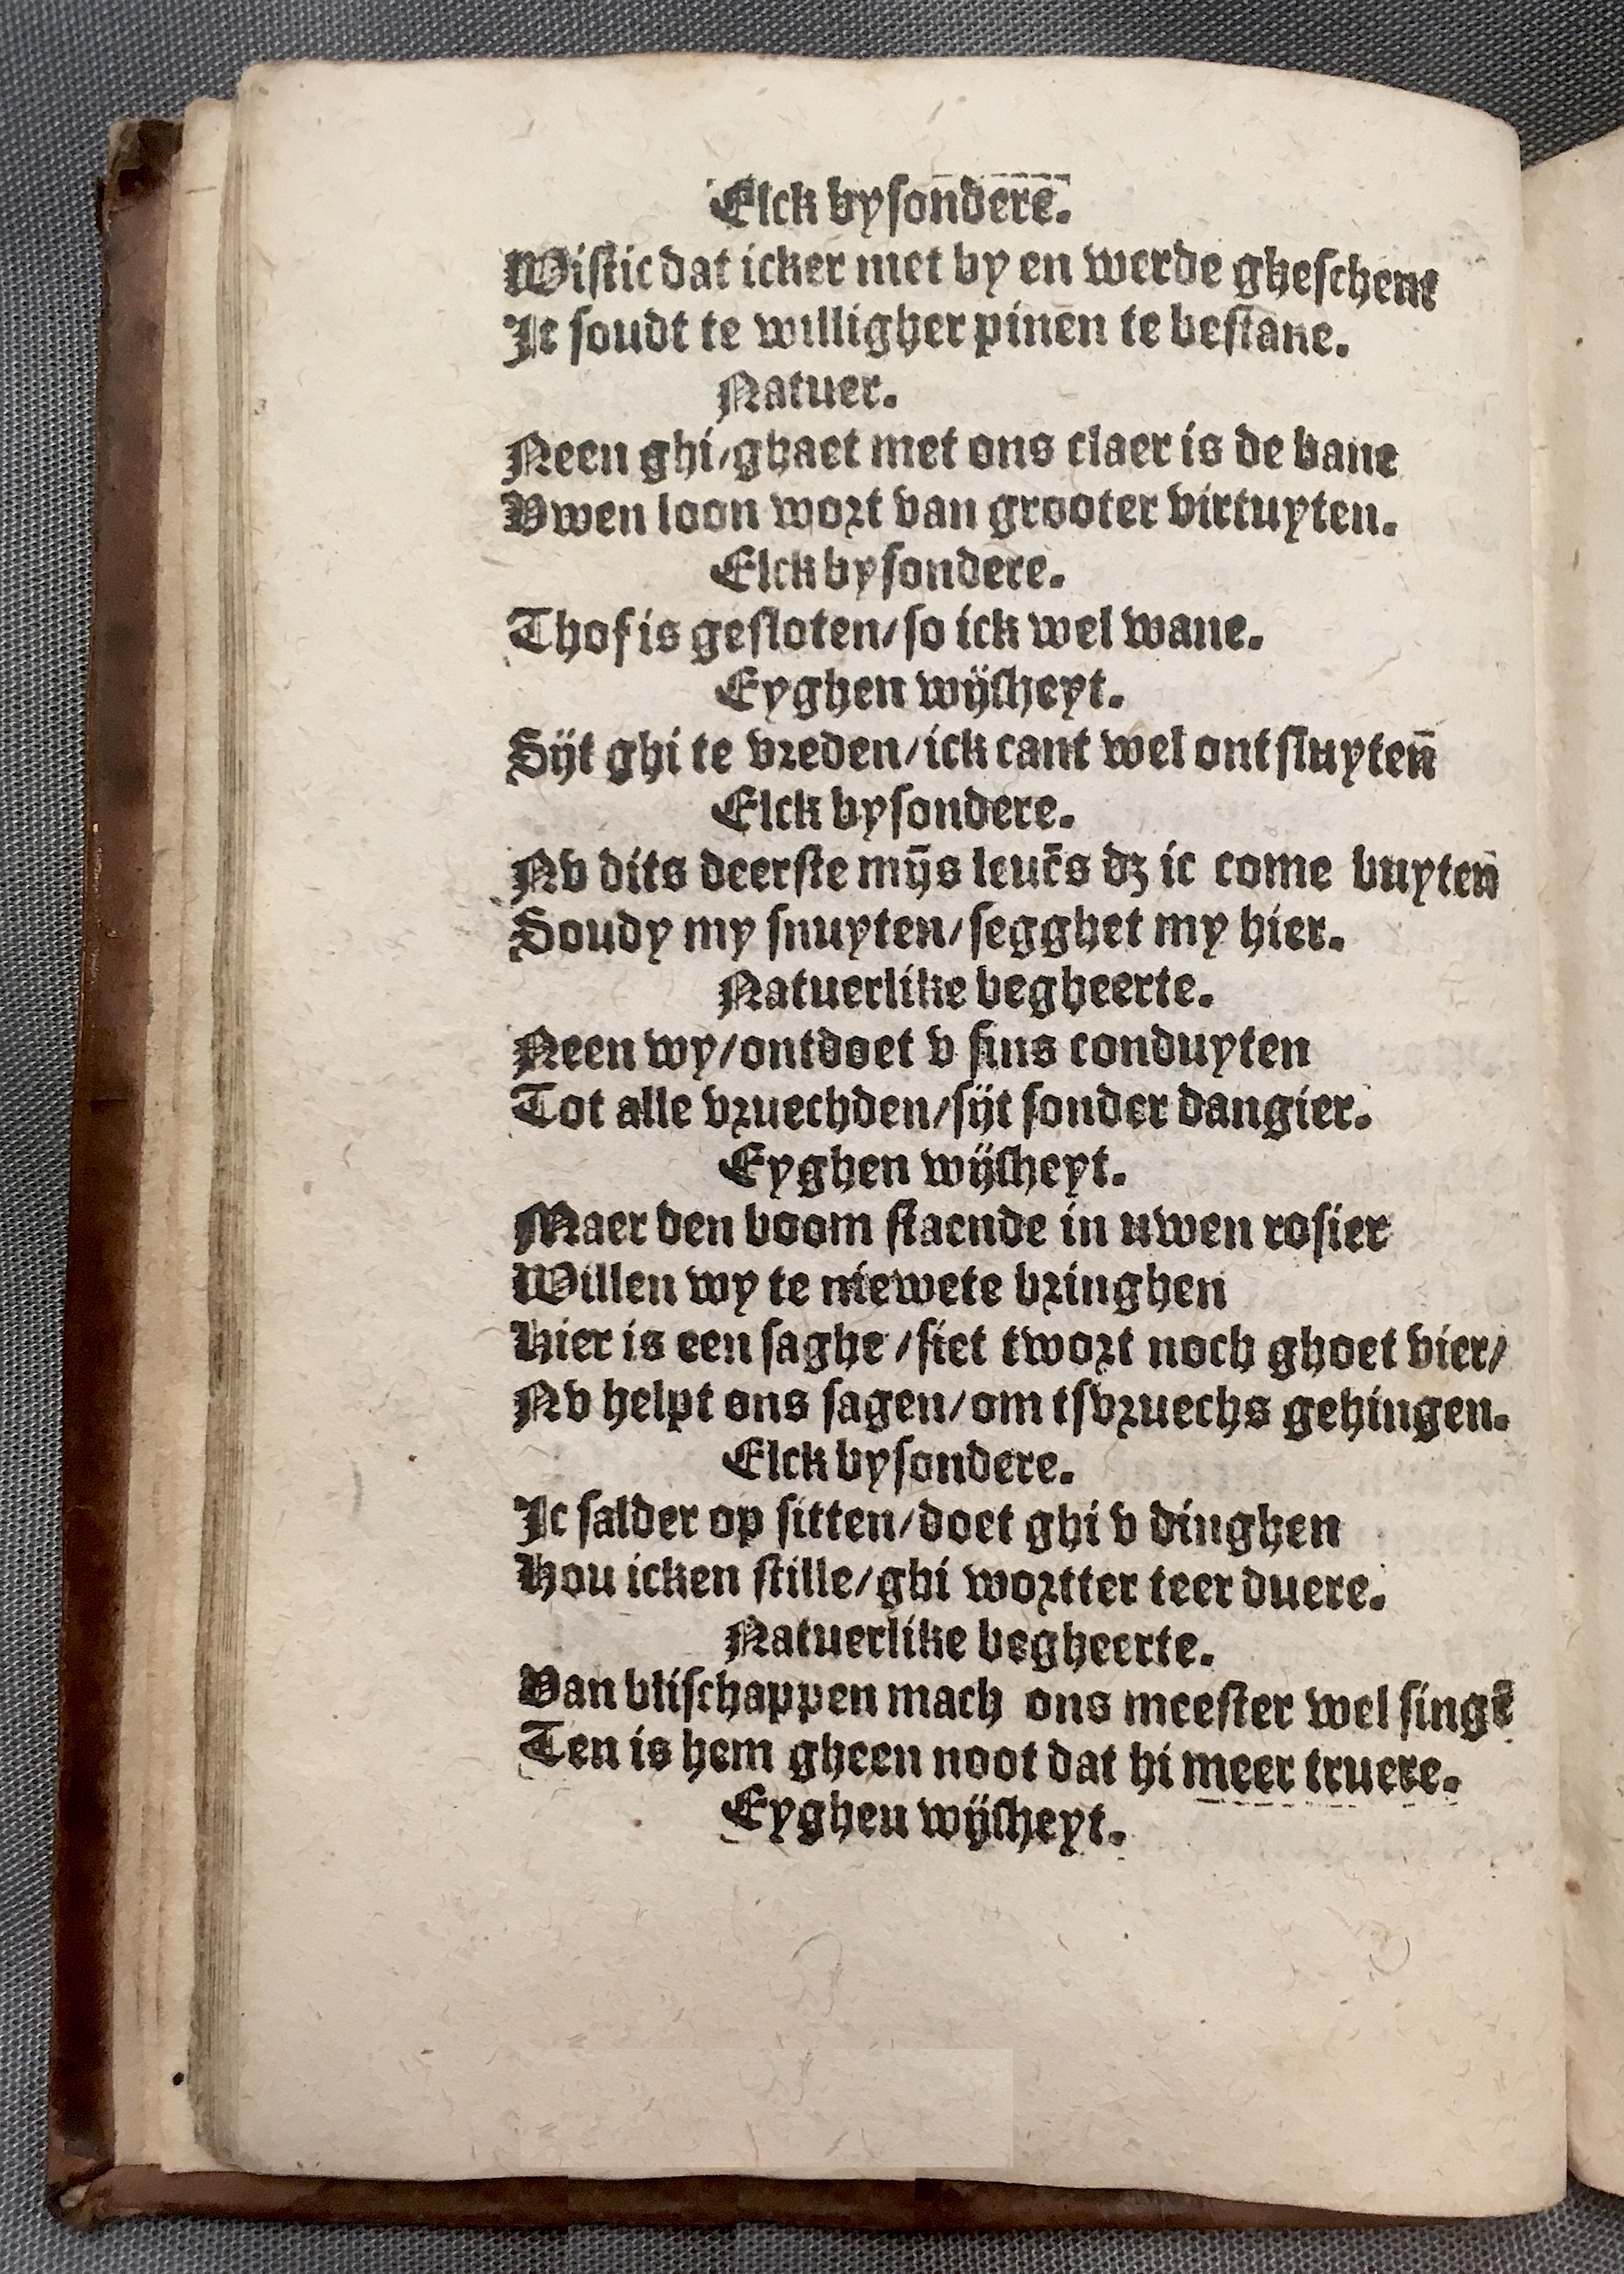 Elck bysondere.
Wistic dat icker niet by en werde gheschent
Ic soudt te willigher pinen te bestane.
Natuer.
Neen ghi/ghaet met ons claer is de bane
Vwen loon wort van grooter virtuyten.
Elck bysondere.
Thof is gesloten/so ick wel wane.
Eyghen wijsheyt.
Sijt ghi te vreden/ick cant wel ontsluyten̄
Elck bysondere.
Nv dits deerste mijs leuēs dz ic come buyten
Soudy my snuyten/segghet my hier.
Natuerlike begheerte.
Neen wy/ontdoet v sins conduyten
Tot alle vruechden/sijt sonder dangier.
Eyghen wijsheyt.
Maer den boom staende in uwen rosier
Willen wy te niewete bringhen
Hier is een saghe/siet twort noch ghoet vier/
Nv helpt ons sagen/om tsvruechs gehingen.
Elck bysondere.
Ic salder op sitten/doet ghi v dinghen
Hou icken stille/ghi wortter teer duere.
Natuerlike begheerte.
Van blischappen mach ons meester wel singē
Ten is hem gheen noot dat hi meer truere.
Eygheu wijsheyt.